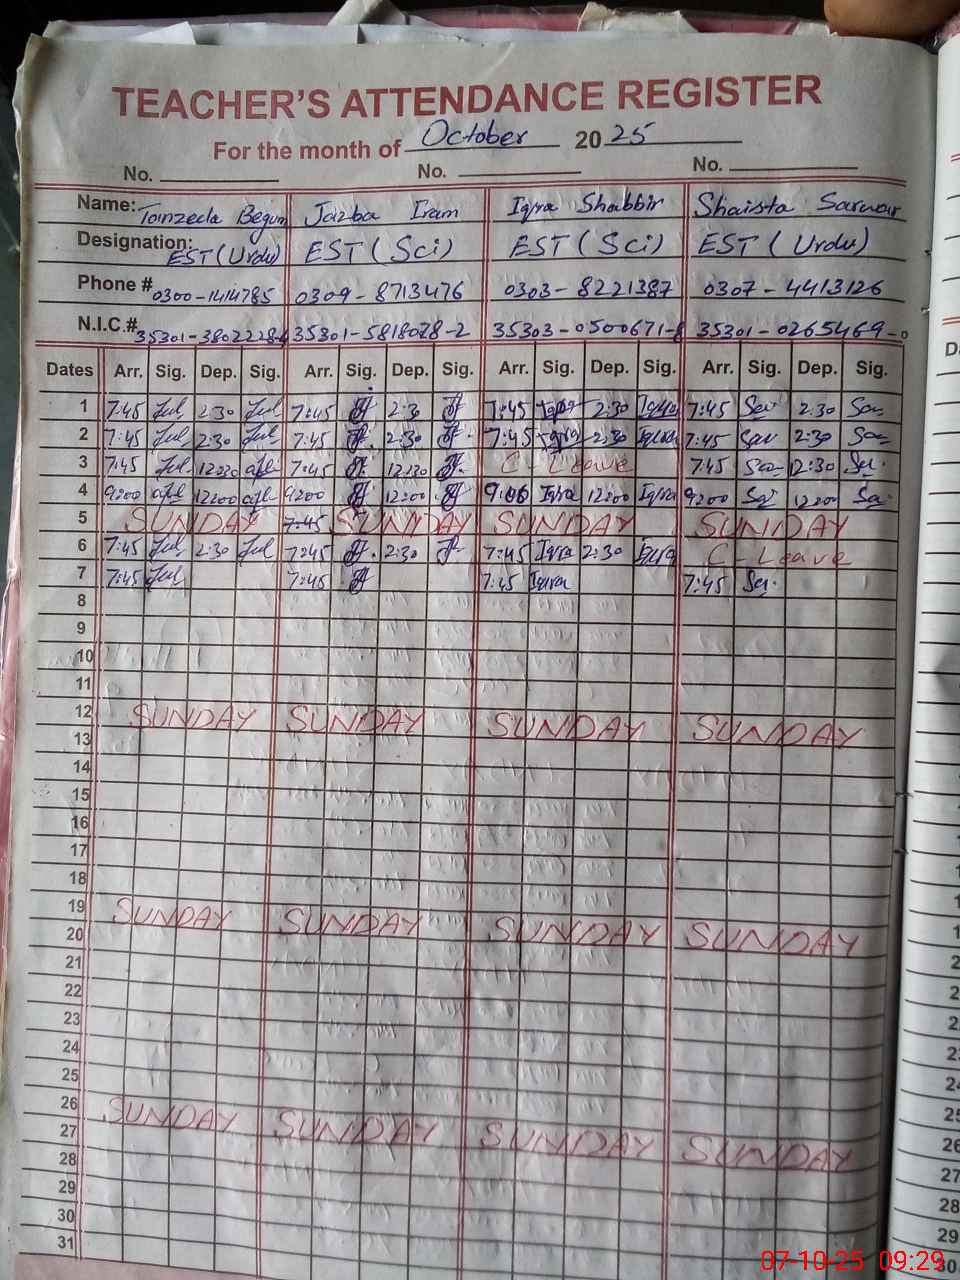 TEACHER'S ATTENDANCE REGISTER
For the month of October 2025
No. No. No.
Name: Tanzeela Begum Jazba Iram Iqra Shabbir Shaista Sarwar
Designation: EST (Urdu) EST (Sci) EST (Sci) EST (Urdu)
Phone # 0300-1414785 0309-8713476 0303-8221387 0307-4413126
N.I.C.# 35301-3802228- 35301-5818078-2 35303-0500671-8 35301-0265469-0
Dates Arr. Sig. Dep. Sig. Arr. Sig. Dep. Sig. Arr. Sig. Dep. Sig. Arr. Sig. Dep. Sig.
1 7:45 2:30 7:45 2:30 7:45 Iqra 2:30 Iqra 7:45 2:30
2 7:45 2:30 7:45 2:30 7:45 Iqra 2:30 Iqra 7:45 2:30
3 7:45 12:30 7:45 12:30 C-Leave 7:45 12:30
4 9:00 12:00 9:00 12:00 9:00 Iqra 12:00 Iqra 9:00 12:00
5 SUNDAY 7:45 SUNDAY SUNDAY SUNDAY
6 7:45 2:30 7:45 2:30 7:45 Iqra 2:30 Iqra C-Leave
7 7:45 7:45 7:45 Iqra 7:45
8
9
10
11
12 SUNDAY SUNDAY SUNDAY SUNDAY
13
14
15
16
17
18
19 SUNDAY SUNDAY SUNDAY SUNDAY
20
21
22
23
24
25
26 SUNDAY SUNDAY SUNDAY SUNDAY
27
28
29
30
31
07-10-25 09:29